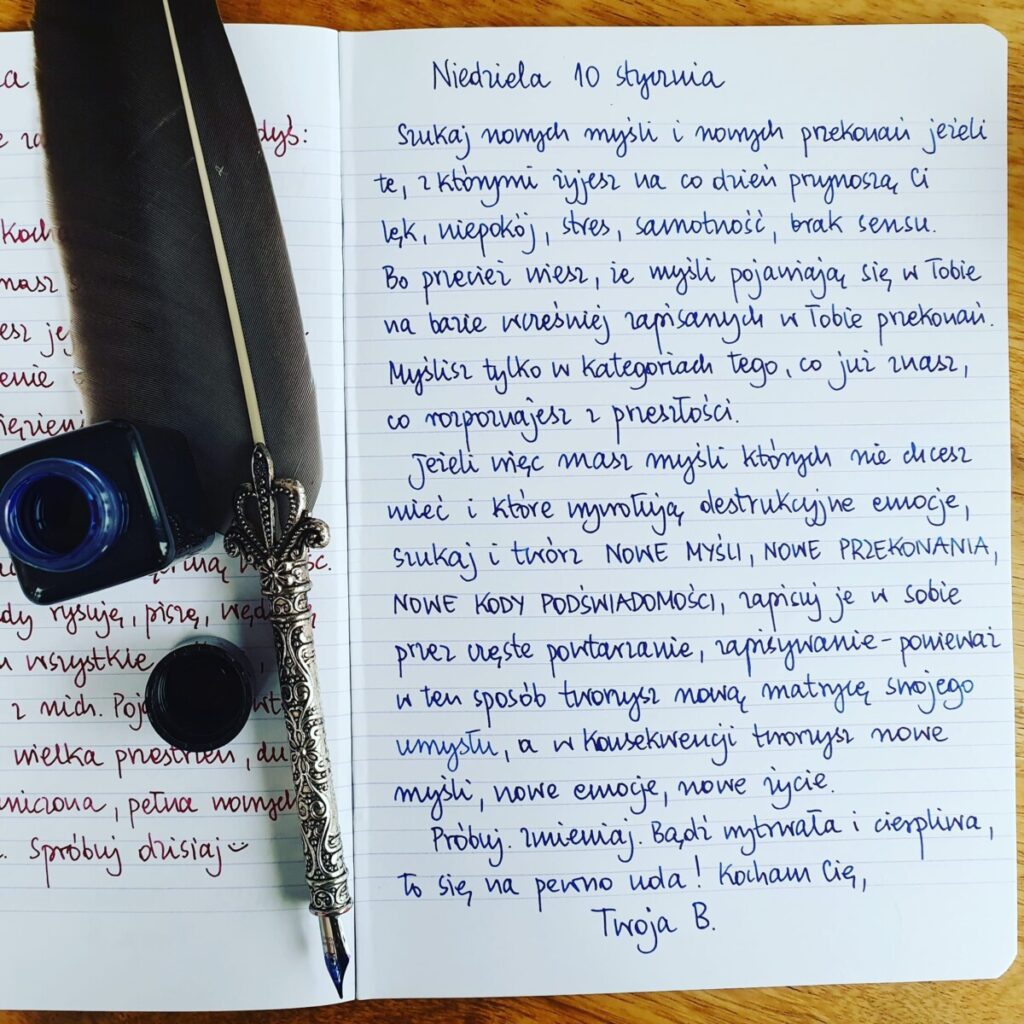 dyś:
Koch
masz
enie
dy rysuję, piszę,
wszystkie
z nich.
wielka przestrzeń, du
niczona, pełna nowych
Spróbuj dzisiaj
Niedziela 10 stycznia
Szukaj nowych myśli i nowych przekonań jeżeli
te, z którymi żyjesz na co dzień przynoszą Ci
lęk, niepokój, stres, samotność, brak sensu.
Bo przecież wiesz, że myśli pojawiają się w Tobie
na bazie wcześniej zapisanych w Tobie przekonań.
Myślisz tylko w kategoriach tego, co już znasz,
co rozpoznajesz z przeszłości.
Jeżeli więc masz myśli których nie chcesz
mieć i które wywołują destrukcyjne emocje,
szukaj i twórz NOWE MYŚLI, NOWE PRZEKONANIA,
NOWE KODY PODŚWIADOMOŚCI, zapisuj je w sobie
przez częste powtarzanie, zapisywanie - ponieważ
w ten sposób tworzysz nową matrycę swojego
umysłu, a w konsekwencji tworzysz nowe
myśli, nowe emocje, nowe życie.
Próbuj. Zmieniaj. Bądź wytrwała i cierpliwa,
to się na pewno uda! Kocham Cię,
Twoja B.